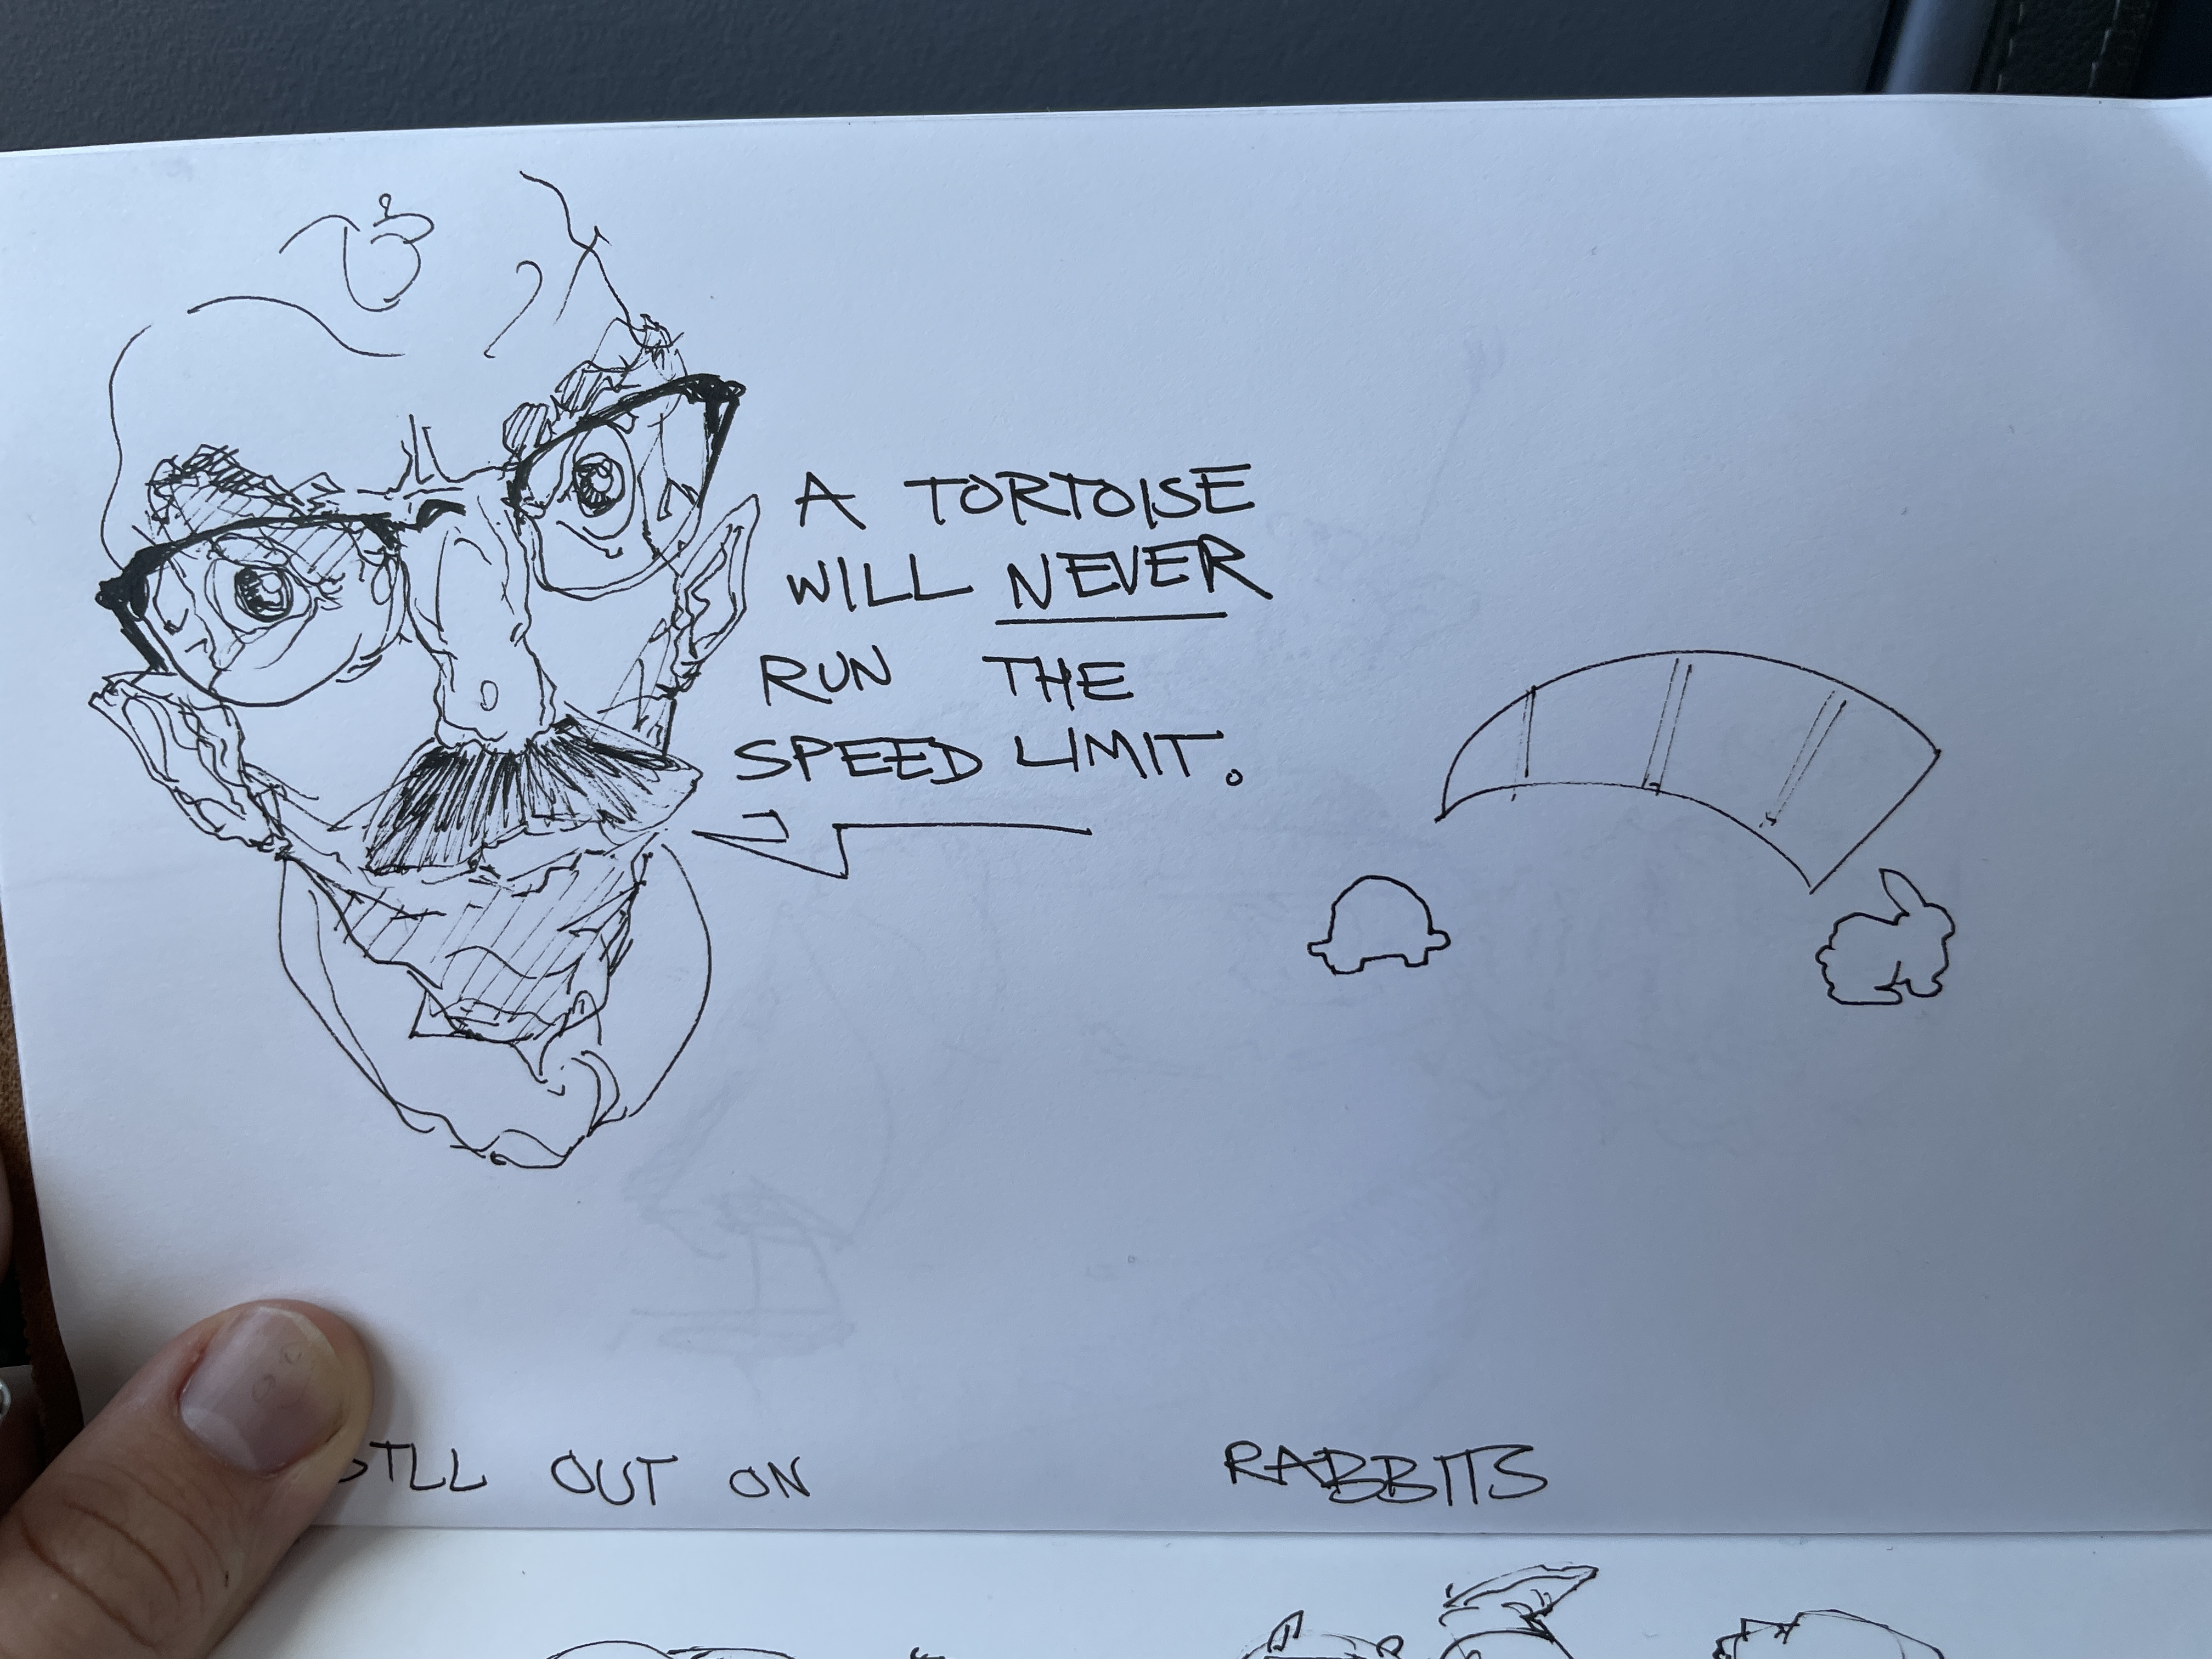 A TORTOISE
WILL NEVER
RUN THE
SPEED LIMIT.
STLL OUT ON RABBITS